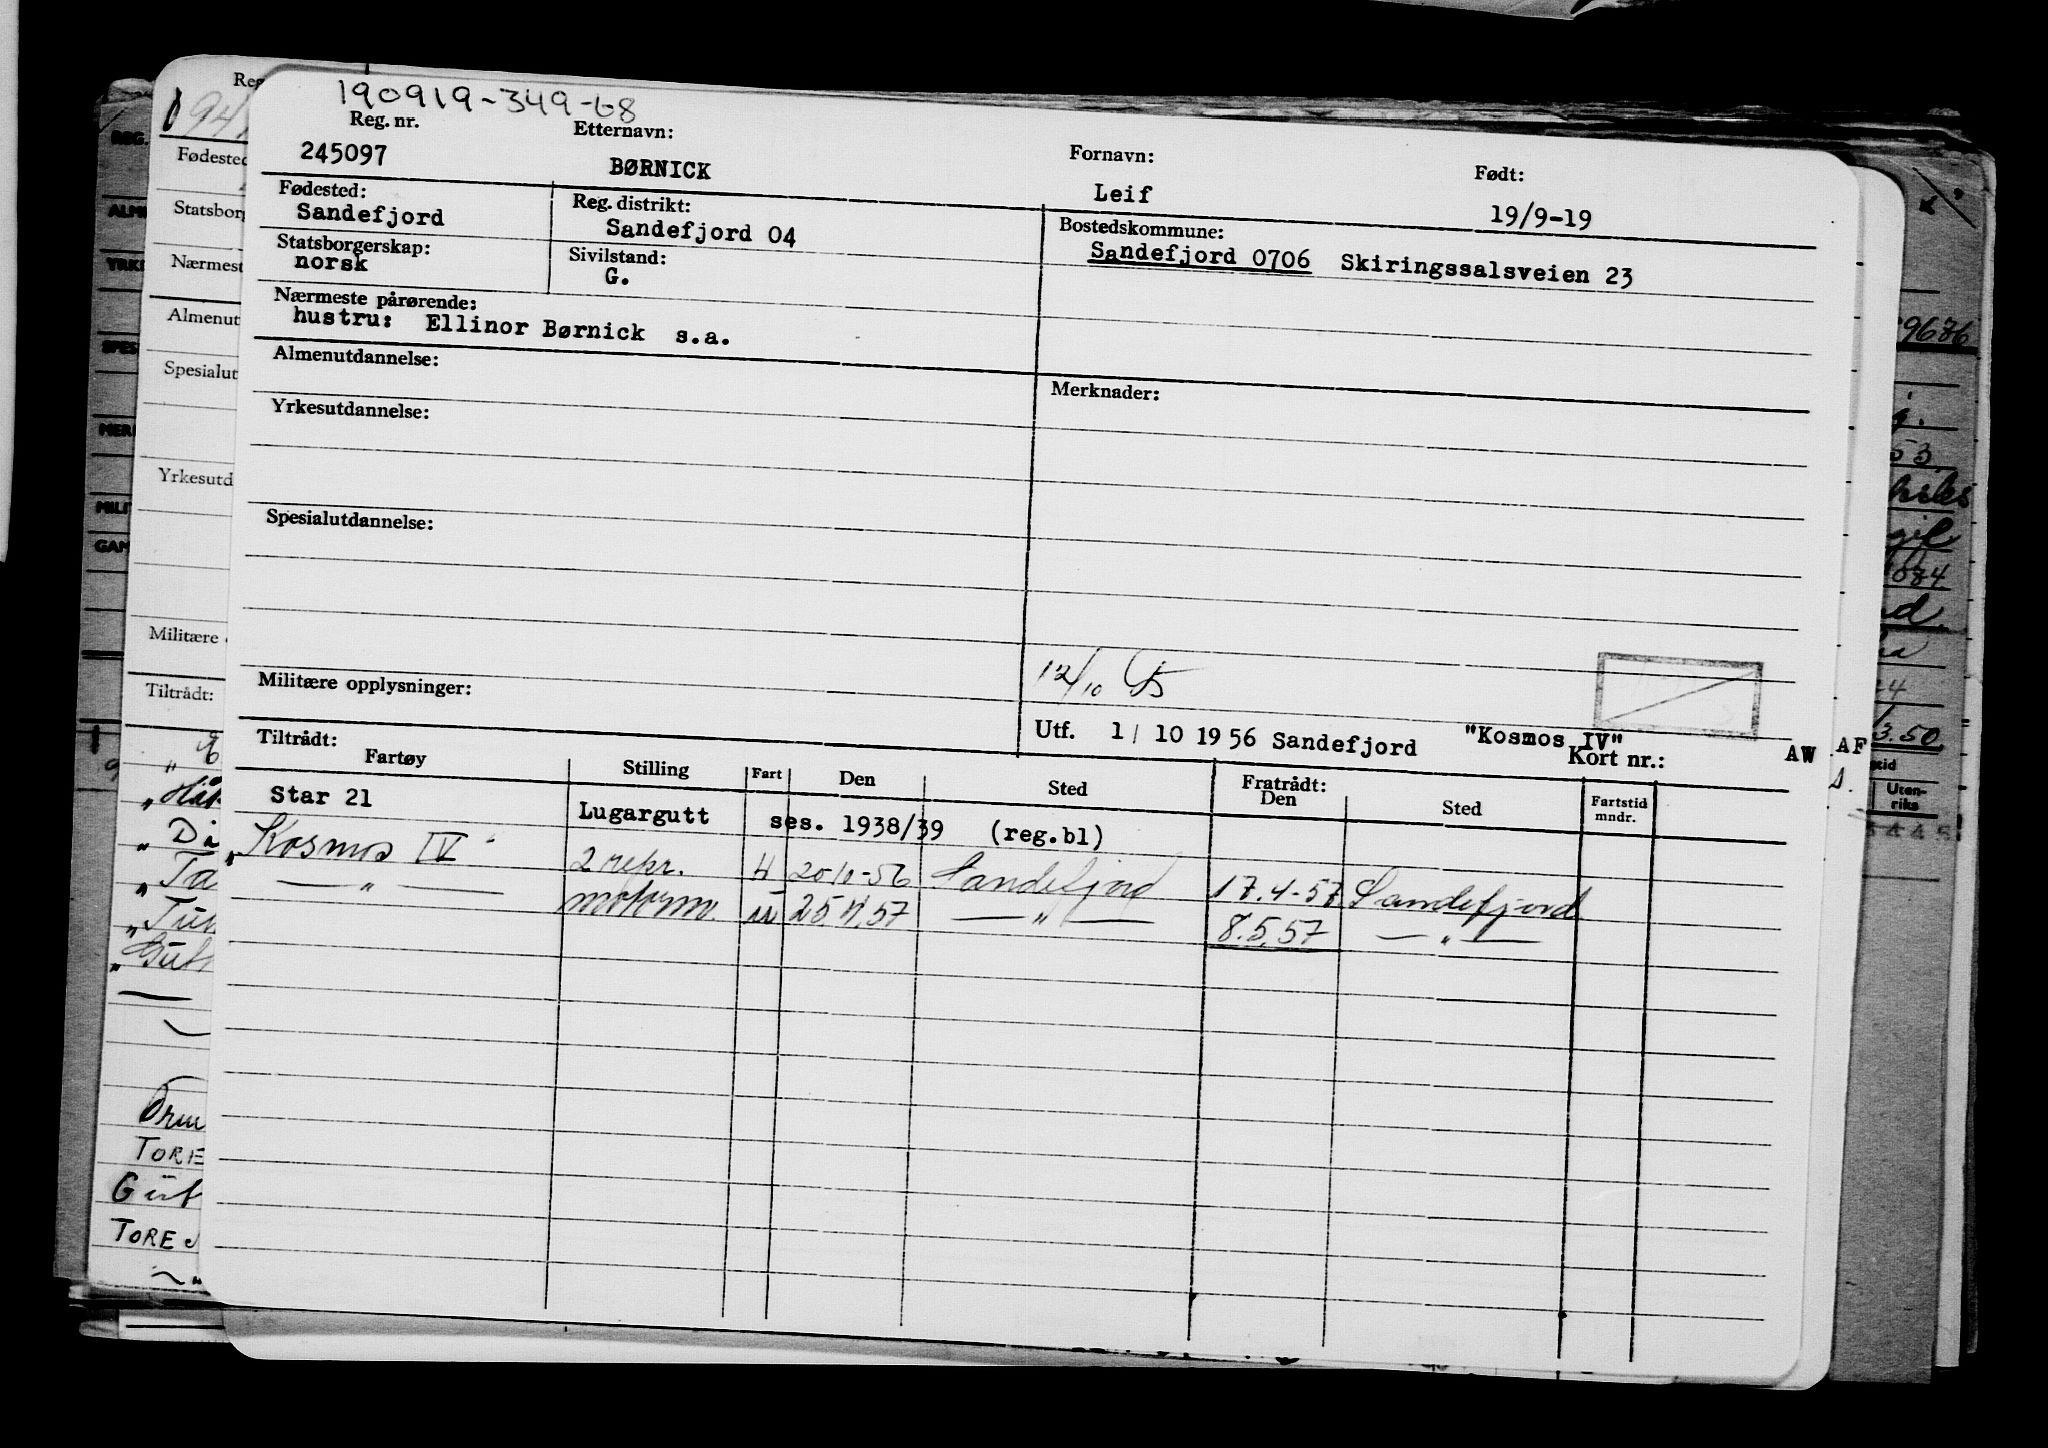 190919-349-68
Reg. nr. Etternavn: Fornavn: Født:
245097 BØRNICK Leif 19/9-19
Fødested: Reg. distrikt: Bostedskommune:
Sandefjord Sandefjord 04 Sandefjord 0706 Skiringssalsveien 23
Statsborgerskap: Sivilstand:
norsk G.
Nærmeste pårørende:
hustru: Ellinor Børnick s.a.
Almenutdannelse: Merknader:
Yrkesutdannelse:
Spesialutdannelse:
12/10
Militære opplysninger:
Utf. 1/ 10 1956 Sandefjord "Kosmos IV" Kort nr.: AW AF
Tiltrådt: Fratrådt:
Fartøy Stilling Fart Den Sted Den Sted Fartstid mndr.
Star 21 Lugargutt ses. 1938/39 (reg.bl)
"Kosmos IV" 2 repr. H 20-10-56 Sandefjord 17.4-57 Sandefjord
— " — motorm. 57 — " — 8.5.57 — " —
Fødested
Statsborg
Nærmest
Almenut
Spesialut
Yrkesutd
Militære
Tiltrådt:
TORE
Guf
TORE
9676
53
084
3.50
Uten-
riks